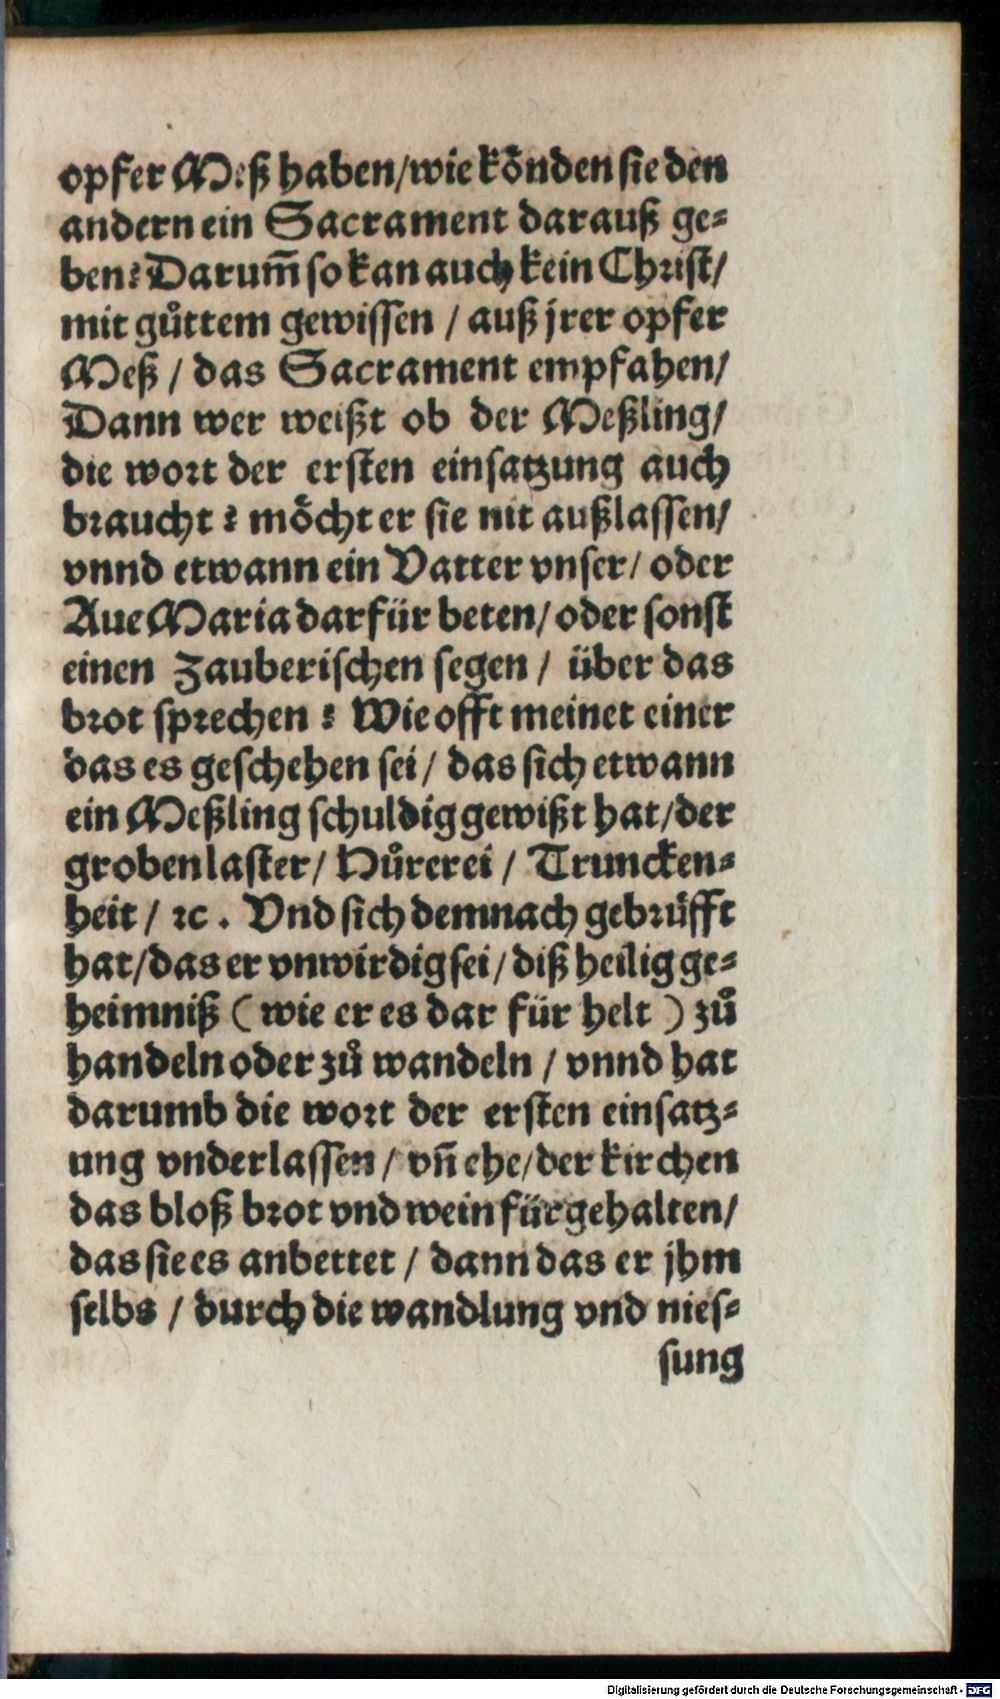 opfer Meß haben/wie koͤnden sie den
andern ein Sacrament darauß ge⸗
ben? Darum̄ so kan auch kein Christ/
mit guͦttem gewissen / auß jrer opfer
Meß / das Sacrament empfahen/
Dann wer weißt ob der Meßling/
die wort der ersten einsatzung auch
braucht? moͤcht er sie nit außlassen/
vnnd etwann ein Vatter vnser/ oder
Aue Maria darfür beten/ oder sonst
einen Zauberischen segen / über das
brot sprechen? Wie offt meinet einer
das es geschehen sei/ das sich etwann
ein Meßling schuldig gewißt hat/der
groben laster/ Huͦrerei / Truncken⸗
heit / ꝛc. Vnd sich demnach gebruͤfft
hat/das er vnwirdig sei/ diß heilig ge⸗
heimniß ( wie er es dar für helt ) zuͦ
handeln oder zuͦ wandeln / vnnd hat
darumb die wort der ersten einsatz⸗
ung vnderlassen / vn̄ ehe/der kirchen
das bloß brot vnd wein fürgehalten/
das sie es anbettet / dann das er jhm
selbs / durch die wandlung vnd nies⸗
sung
Digitalisierung gefördert durch die Deutsche Forschungsgemeinschaft - DFG